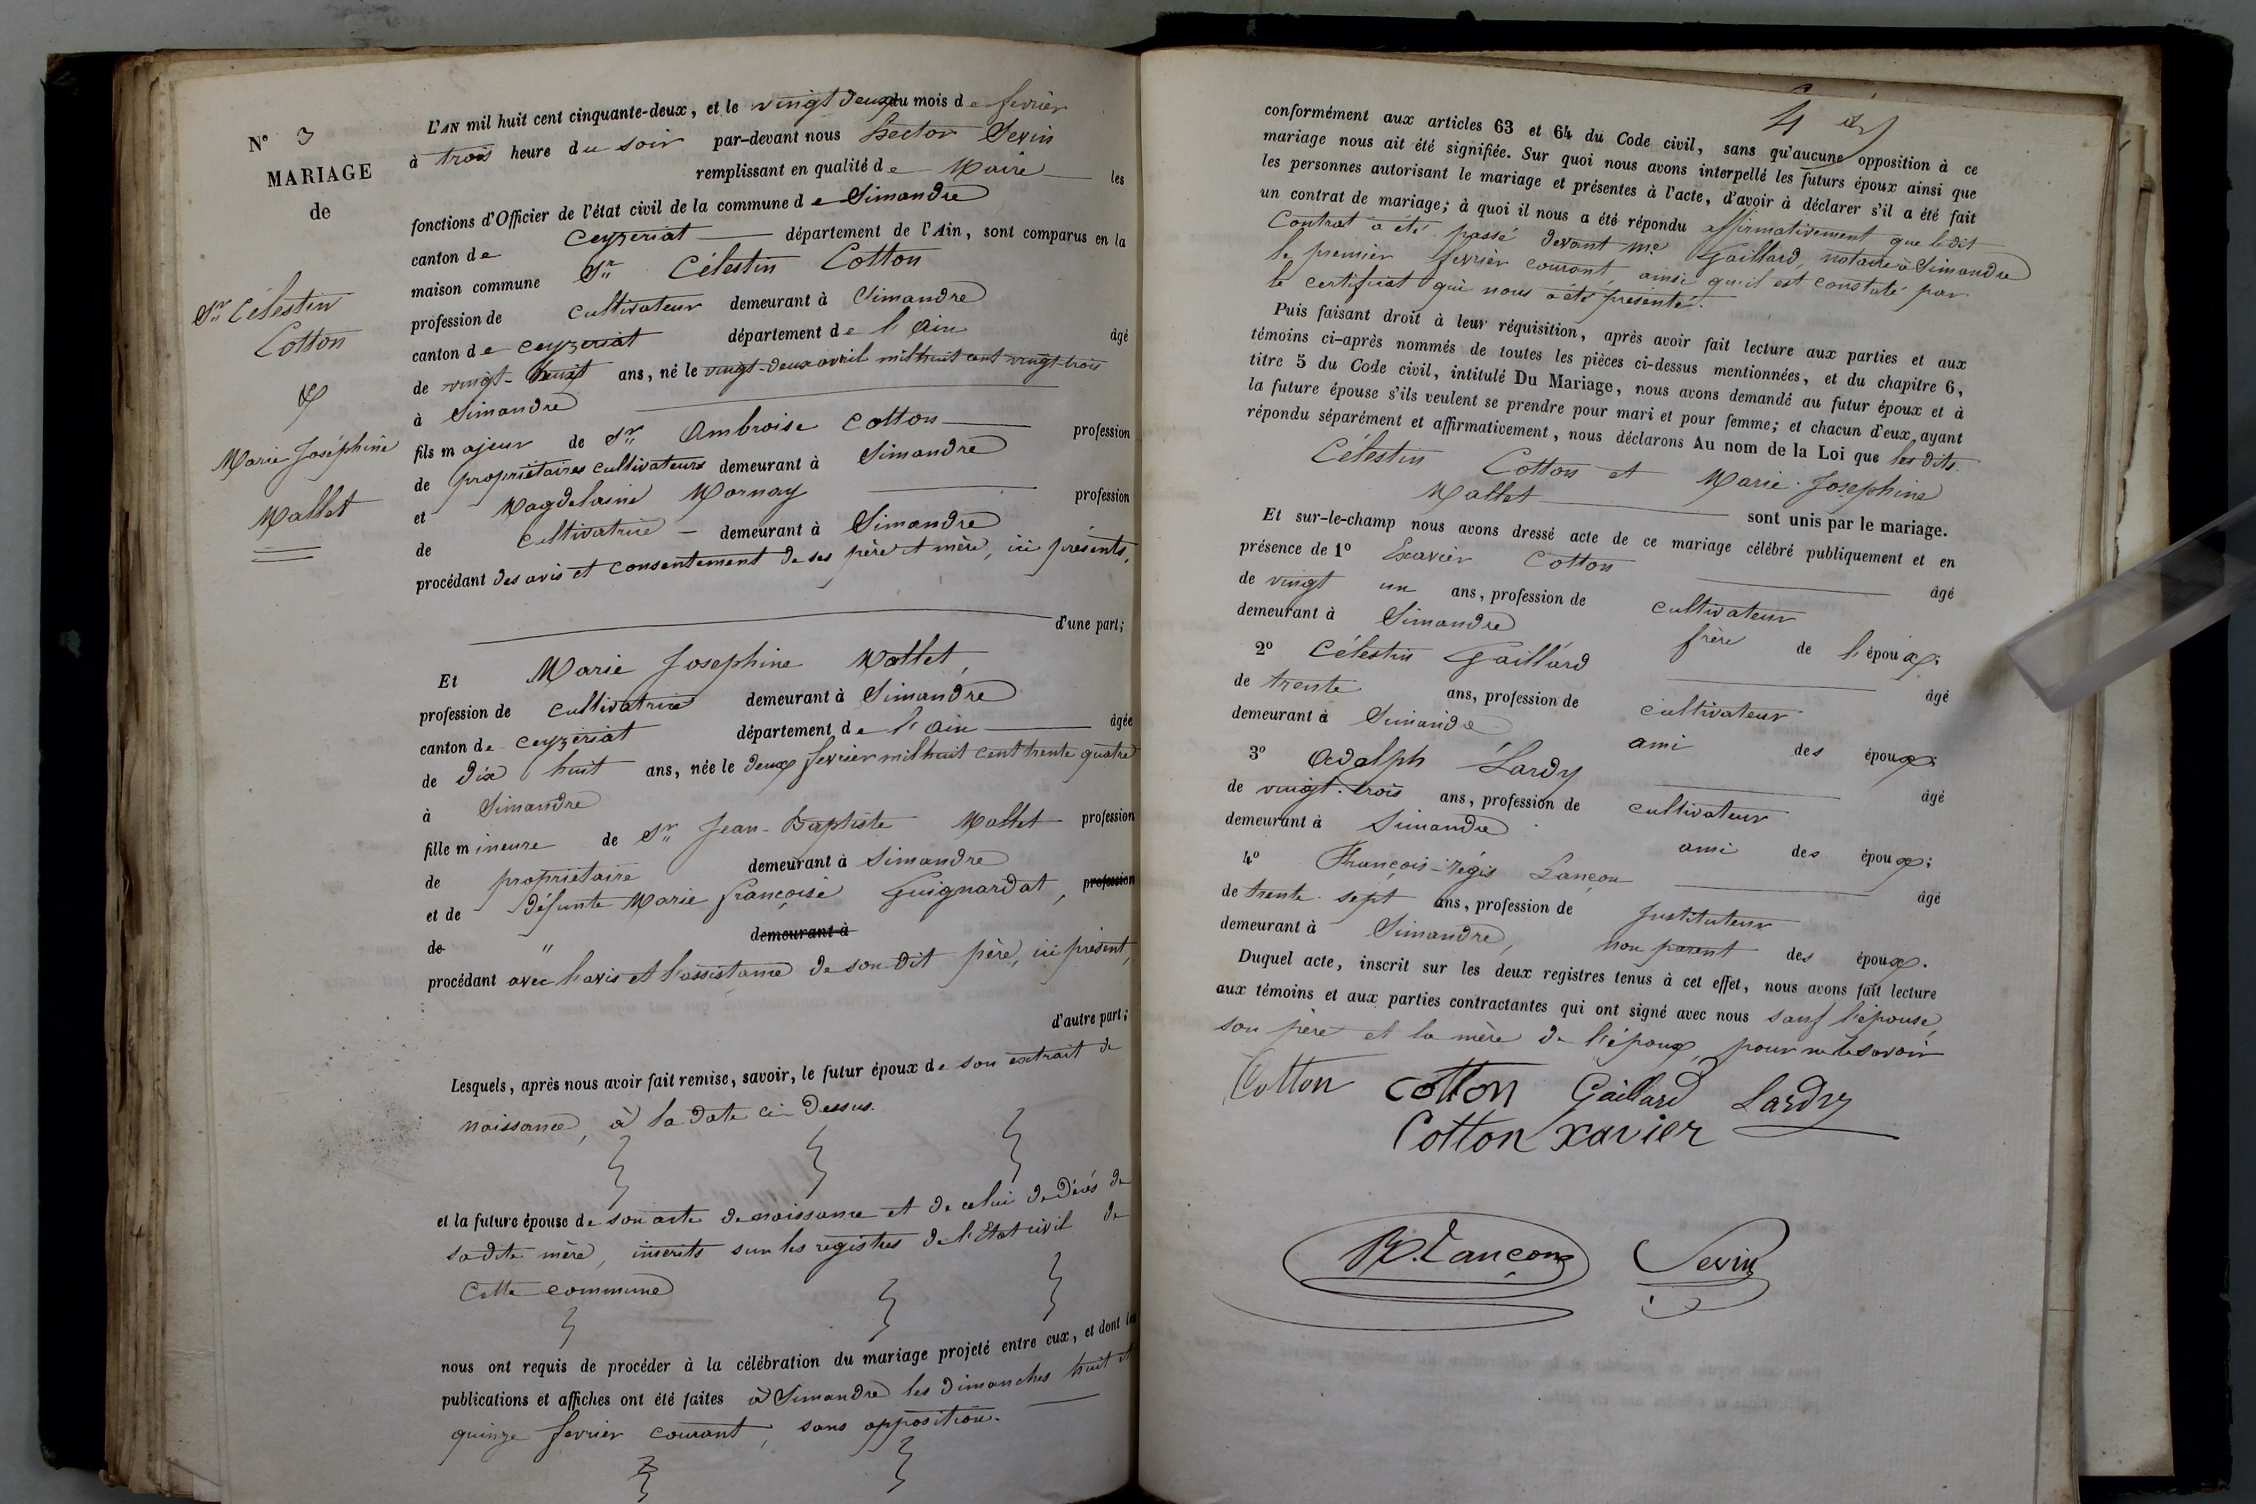 N° 3
MARIAGE
de
Sr Célestin
Cotton
&
Marie Joséphine
Mallet
L'AN mil huit cent cinquante-deux, et le vingt deux du mois de fevrier
à trois heure du soir par-devant nous Hector Sevin
remplissant en qualité de Maire les
fonctions d'Officier de l'état civil de la commune de Simandre
canton de Ceyzeriat département de l'Ain, sont comparus en la
maison commune Sr Célestin Cotton
profession de cultivateur demeurant à Simandre
canton de Ceyzeriat département de l'Ain âgé
de vingt-huit ans, né le vingt-deux avril mil huit cent vingt-trois
à Simandre
fils majeur de Sr Ambroise Cotton profession
de propriétaires cultivateurs demeurant à Simandre
et Magdelaine Mornay profession
de cultivatrice demeurant à Simandre
procédant des avis et consentement de ses père et mère, ici présents,
d'une part;
Et Marie Josephine Mallet,
profession de cultivatrice demeurant à Simandre
canton de Ceyzeriat département de l'Ain âgée
de dix huit ans, née le deux fevrier mil huit cent trente quatre
à Simandre
fille mineure de Sr Jean-Baptiste Mallet profession
de propriétaire demeurant à Simandre
et de défunte Marie françoise Guignardat, profession
de " demeurant à
procédant avec l'avis et l'assistance de son dit père, ici présent,
d'autre part;
Lesquels, après nous avoir fait remise, savoir, le futur époux de son extrait de
naissance, à la date ci-dessus.
et la future épouse de son acte de naissance et de celui de décès de
sadite mère, inscrits sur les registres de l'Etat civil de
Cette commune
nous ont requis de procéder à la célébration du mariage projeté entre eux, et dont les
publications et affiches ont été faites à Simandre les dimanches huit et
quinze fevrier courant, sans opposition.
4
conformément aux articles 63 et 64 du Code civil, sans qu'aucune opposition à ce
mariage nous ait été signifiée. Sur quoi nous avons interpellé les futurs époux ainsi que
les personnes autorisant le mariage et présentes à l'acte, d'avoir à déclarer s'il a été fait
un contrat de mariage; à quoi il nous a été répondu affirmativement que ledit
Contrat a été passé devant Me Gaillard, notaire à Simandre
le premier fevrier courant, ainsi qu'il est constaté par
le certificat qui nous a été présenté.
Puis faisant droit à leur réquisition, après avoir fait lecture aux parties et aux
témoins ci-après nommés de toutes les pièces ci-dessus mentionnées, et du chapitre 6,
titre 5 du Code civil, intitulé Du Mariage, nous avons demandé au futur époux et à
la future épouse s'ils veulent se prendre pour mari et pour femme; et chacun d'eux ayant
répondu séparément et affirmativement, nous déclarons Au nom de la Loi que les dits
Célestin Cotton et Marie Josephine
Mallet sont unis par le mariage.
Et sur-le-champ nous avons dressé acte de ce mariage célébré publiquement et en
présence de 1° Exavier Cotton âgé
de vingt un ans, profession de cultivateur
demeurant à Simandre frère de l'époux;
2° Célestin Gaillard âgé
de trente ans, profession de cultivateur
demeurant à Simandre ami des époux;
3° Adolph Lardy âgé
de vingt-trois ans, profession de cultivateur
demeurant à Simandre ami des époux;
4° François-Régis Lançon âgé
de trente-sept ans, profession de Instituteur
demeurant à Simandre, non parent des époux.
Duquel acte, inscrit sur les deux registres tenus à cet effet, nous avons fait lecture
aux témoins et aux parties contractantes qui ont signé avec nous sauf l'épouse,
son père et la mère de l'époux, pour ne le savoir
Cotton cotton Gaillard Lardy
Cotton xavier
R. Lançon Sevin